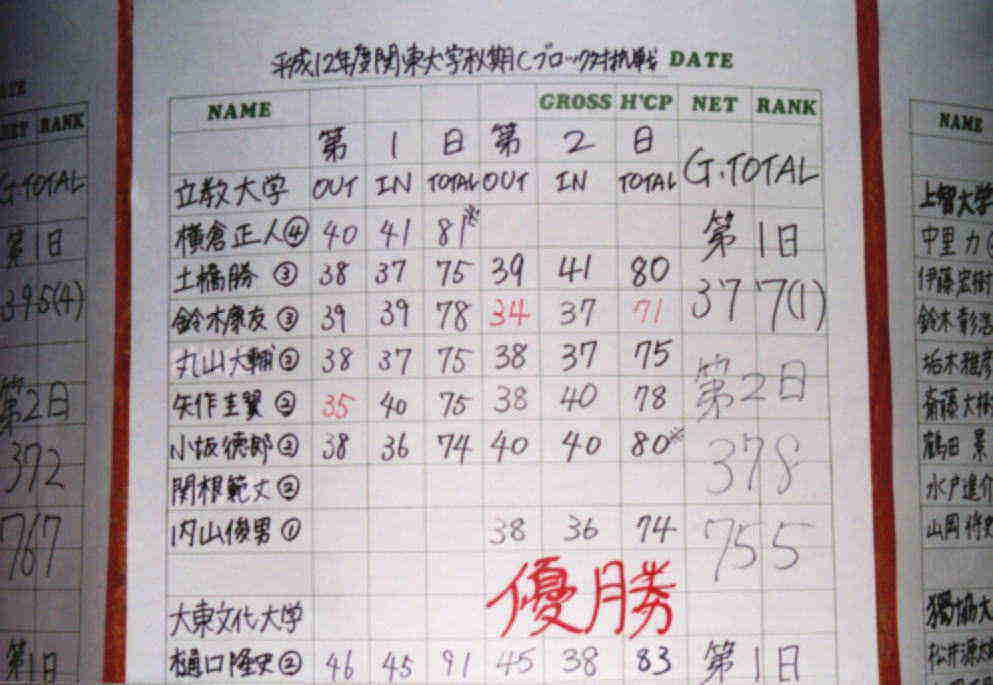 平成12年度関東大学秋期Cブロック対抗戦 DATE
NAME GROSS H'CP NET RANK
第 1 日 第 2 日
立教大学 OUT IN TOTAL OUT IN TOTAL G.TOTAL
横倉正人④ 40 41 81※ 第1日
土橋勝 ③ 38 37 75 39 41 80
鈴木康友③ 39 39 78 34 37 71 377(1)
丸山大輔② 38 37 75 38 37 75
矢作圭賢② 35 40 75 38 40 78 第2日
小坂徳郎② 38 36 74 40 40 80※ 378
関根範丈②
内山俊男① 38 36 74 755
優勝
大東文化大学
樋口隆史② 46 45 91 45 38 83 第1日
NET RANK
G.TOTAL
第1日
395(4)
第2日
372
767
第1日
NAME
上智大学
中里 力
伊藤宏樹
鈴木彰浩
栃木雅彦
斎藤大樹
鶴田 景
水戸進介
山岡将史
獨協大
松井源太